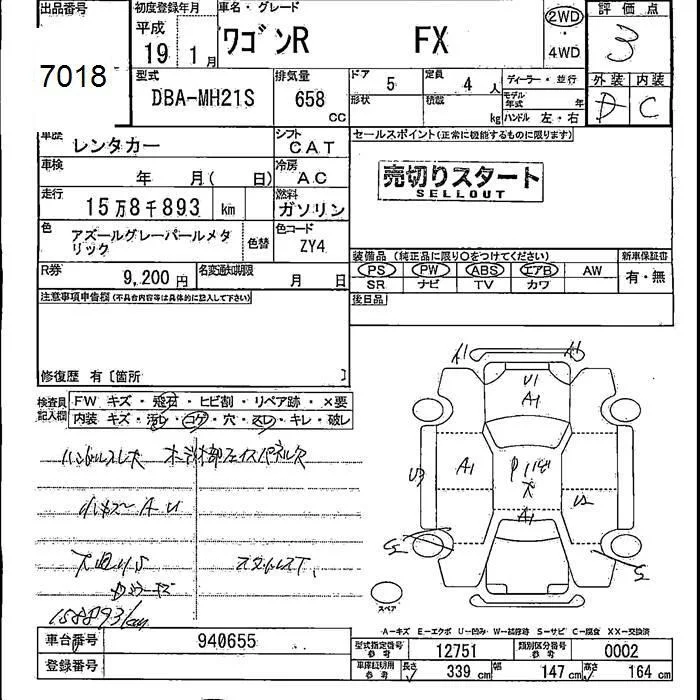 出品番号
7018
初度登録年月
平成
19 1月
車名・グレード
ワゴンR FX
2WD
・
4WD
評価点
3
外装 内装
D C
型式
DBA-MH21S
排気量
658
CC
ドア 5
定員 4人
ディーラー・並行
形状
積載 kg
モデル年式 年
ハンドル 左・右
車歴
レンタカー
シフト
CAT
車検
年 月( 日)
冷房
AC
走行
15万8千893 km
燃料
ガソリン
色
アズールグレーパールメタリック
色替
色コード
ZY4
R券
9,200円
名変通知期限
月 日
セールスポイント(正常に機能するものに限ります)
売切りスタート
SELLOUT
装備品 (純正品に限り○をつけてください)
新車保証書
PS PW ABS エアB AW
有・無
SR ナビ TV カワ
後日品
注意事項申告欄(不具合内容等は具体的に記入して下さい)
修復歴 有〔箇所 〕
検査員記入欄
FW キズ・飛石・ヒビ割・リペア跡・×要
内装 キズ・汚レ・コゲ・穴・スレ・キレ・破レ
ハンドルスレ大
スタットレスT.
158893km
A1
A1
U1
A1
U3
A1
U2
A1
S
S
スペア
A-キズ E-エクボ U-凹み W-補修跡 S-サビ C-腐食 XX-交換済
車台番号
940655
登録番号
型式指定番号 参考
12751
類別区分番号 参考
0002
車庫証明用 参考
長さ 339 cm
幅 147 cm
高さ 164 cm